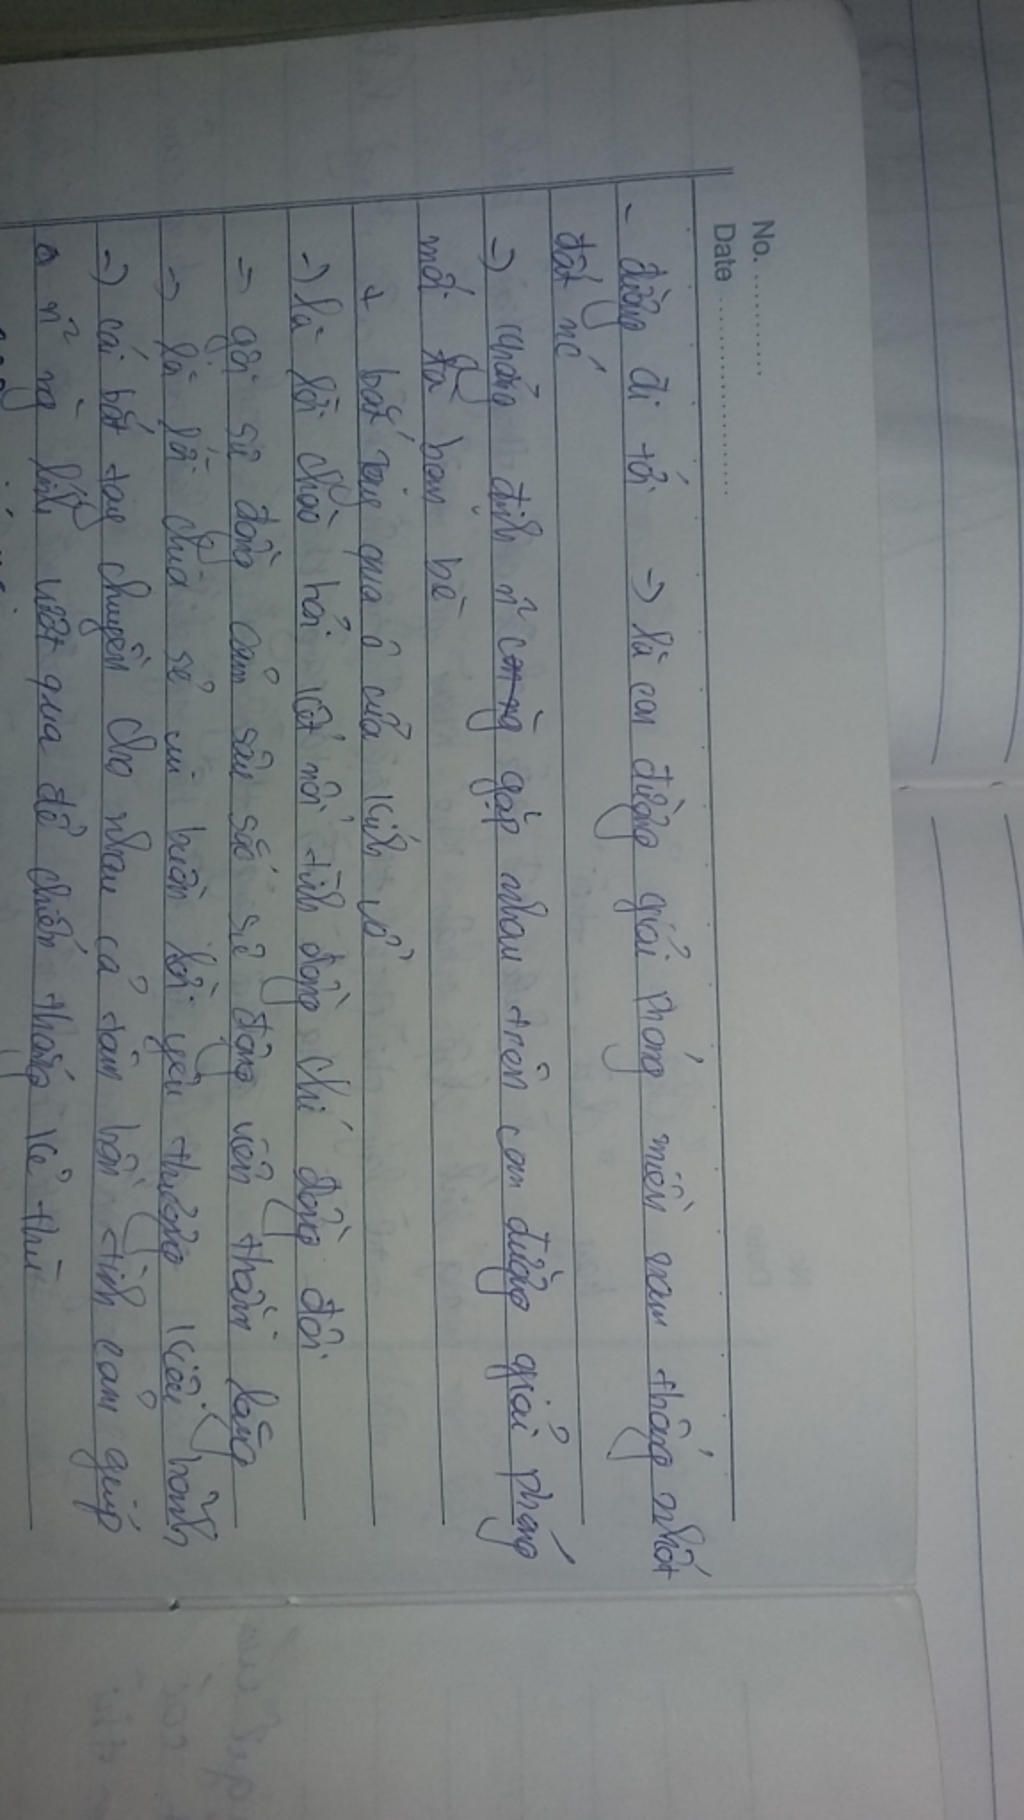 No. ............
Date ........................
- đường đi tới -> là con đường giải phóng miền nam thống nhất
đất nc
-> khẳng định n~ gặp nhau trên con đường giải phóng
mới là bạn bè
+ bắt tay qua ô cửa kính vỡ
-> là lời chào hỏi kết nối tình đồng chí đồng đội
-> gửi sự đồng cảm sâu sắc sự động viên thầm lặng
-> là lời chia sẻ vui buồn lời yêu thương kiêu hãnh
-> cái bắt tay chuyền cho nhau cả tâm hồn tình cảm giúp
n~ ng lính vượt qua để chiến thắng kẻ thù